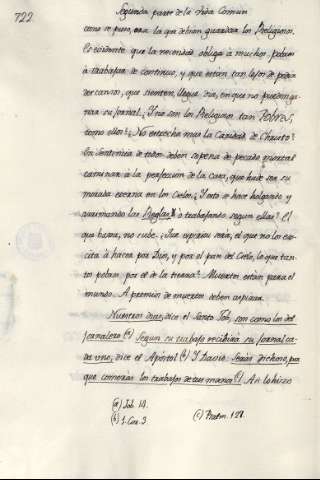 722
Segunda parte de la Vida Comun
como se puso, era la que debian guardar los Religiosos.
Es evidente que la necesidad obliga á muchos pobres
á trabajar de continuo, y que estan tan lejos de pedir
descanso, que sienten, llegue dia, en que no puedan ga-
nar su jornal. ¿Y no son los Religiosos tan Pobres,
como ellos? ¿No estrecha mas la Caridad de Christo?
En Sentencia de todos deben sopena de pecado mortal
caminar á la perfeccion de la casa, que hade ser su
morada eterna en los Cielos. ¿Y esto se hace holgando y
quebrantando las Reglas, ó trabajando segun ellas? El
que basa, no sube. ¿Que oprobrio seria, el que no los ex-
cita á hacer por Dios, y por el pan del Cielo, lo que tan-
to pobres por el de la tierra? Muertos estan para el
mundo. A premios de muertos deben aspirar.
Nuestros dias, dice el Santo Job, son como los del
jornalero (a) Segun su trabajo recibirá su jornal ca-
da uno, dice el Apostol (b) Y David. Serás dichoso, por
que comerás los trabajos de tus manos (c). Asi lo hizo
(a) Job. 14.
(b) 1. Cor. 3.
(c) Psalm. 127.